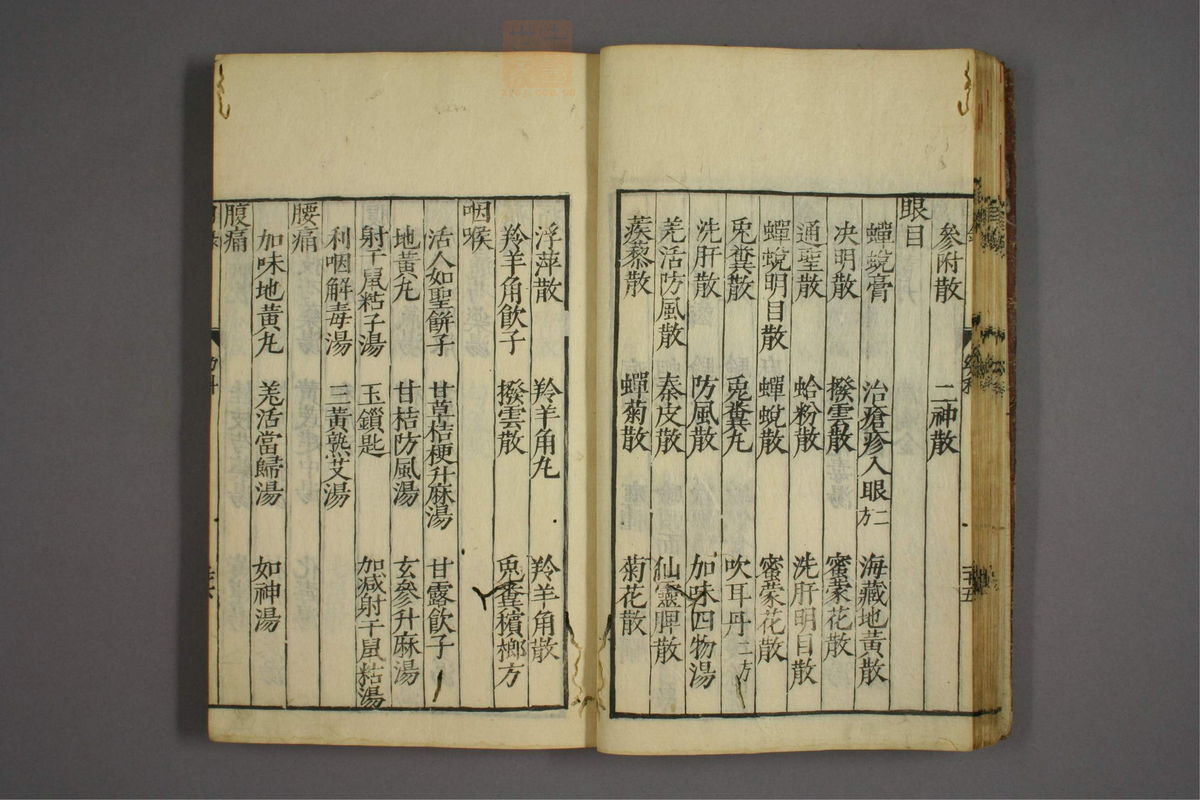 參附散　二神散
眼目
蟬蛻膏　治瘡疹入眼方二　海藏地黃散
决明散　撥雲散　蜜蒙花散
通聖散　蛤粉散　洗肝明目散
蟬蛻明目散　蟬蛻散　蜜蒙花散
兎糞散　兎糞丸　吹耳丹二方
洗肝散　防風散　加味四物湯
羌活防風散　秦皮散　仙靈脾散
蒺藜散　蟬菊散　菊花散
浮萍散　羚羊角丸　羚羊角散
羚羊角飲子　撥雲散　兎糞檳榔方
咽喉
活人如聖餅子　甘草桔梗升麻湯　甘露飲子
地黃丸　甘桔防風湯　玄參升麻湯
射干鼠粘子湯　玉鎖匙　加減射干鼠粘湯
利咽解毒湯　三黃熟艾湯
腰痛
加味地黃丸　羌活當歸湯　如神湯
腹痛
幼科